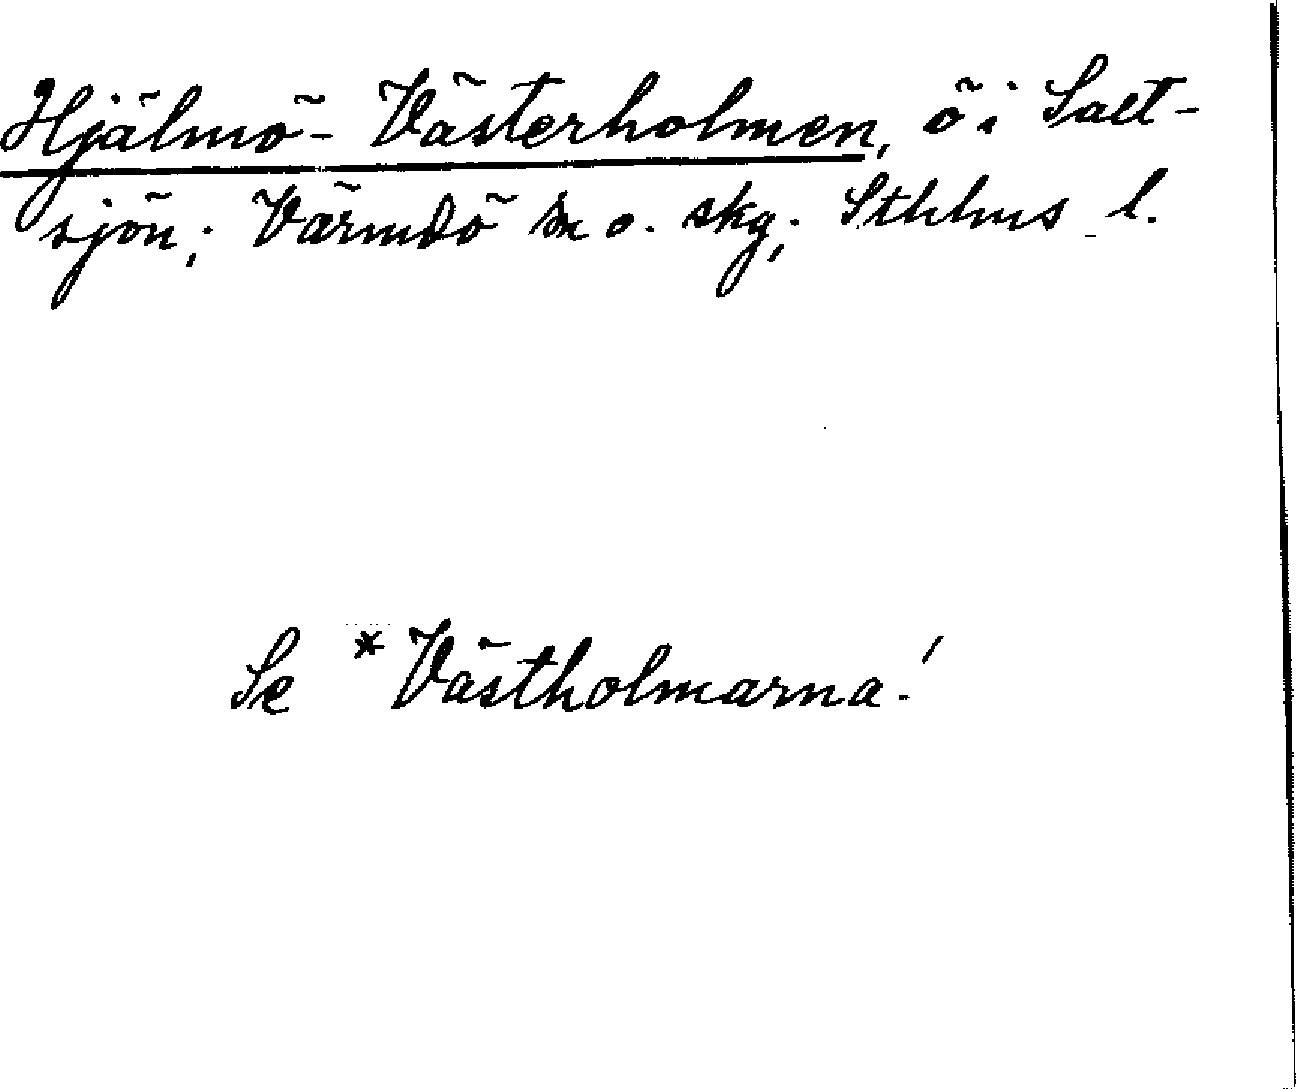 Hjälmö-Västerholmen, ö i Salt-
sjön; Värmdö sn o. skg; Sthlms l.
Se *Västholmarna!